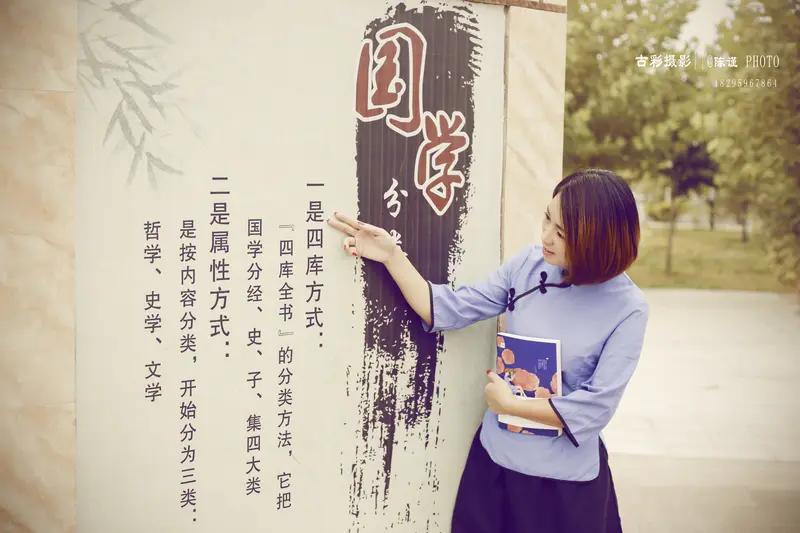 国学
分
一是四库方式：
『四库全书』的分类方法，它把
国学分经、史、子、集四大类
二是属性方式：
是按内容分类，开始分为三类：
哲学、史学、文学
古彩摄影||@陈谨 PHOTO
18295967864